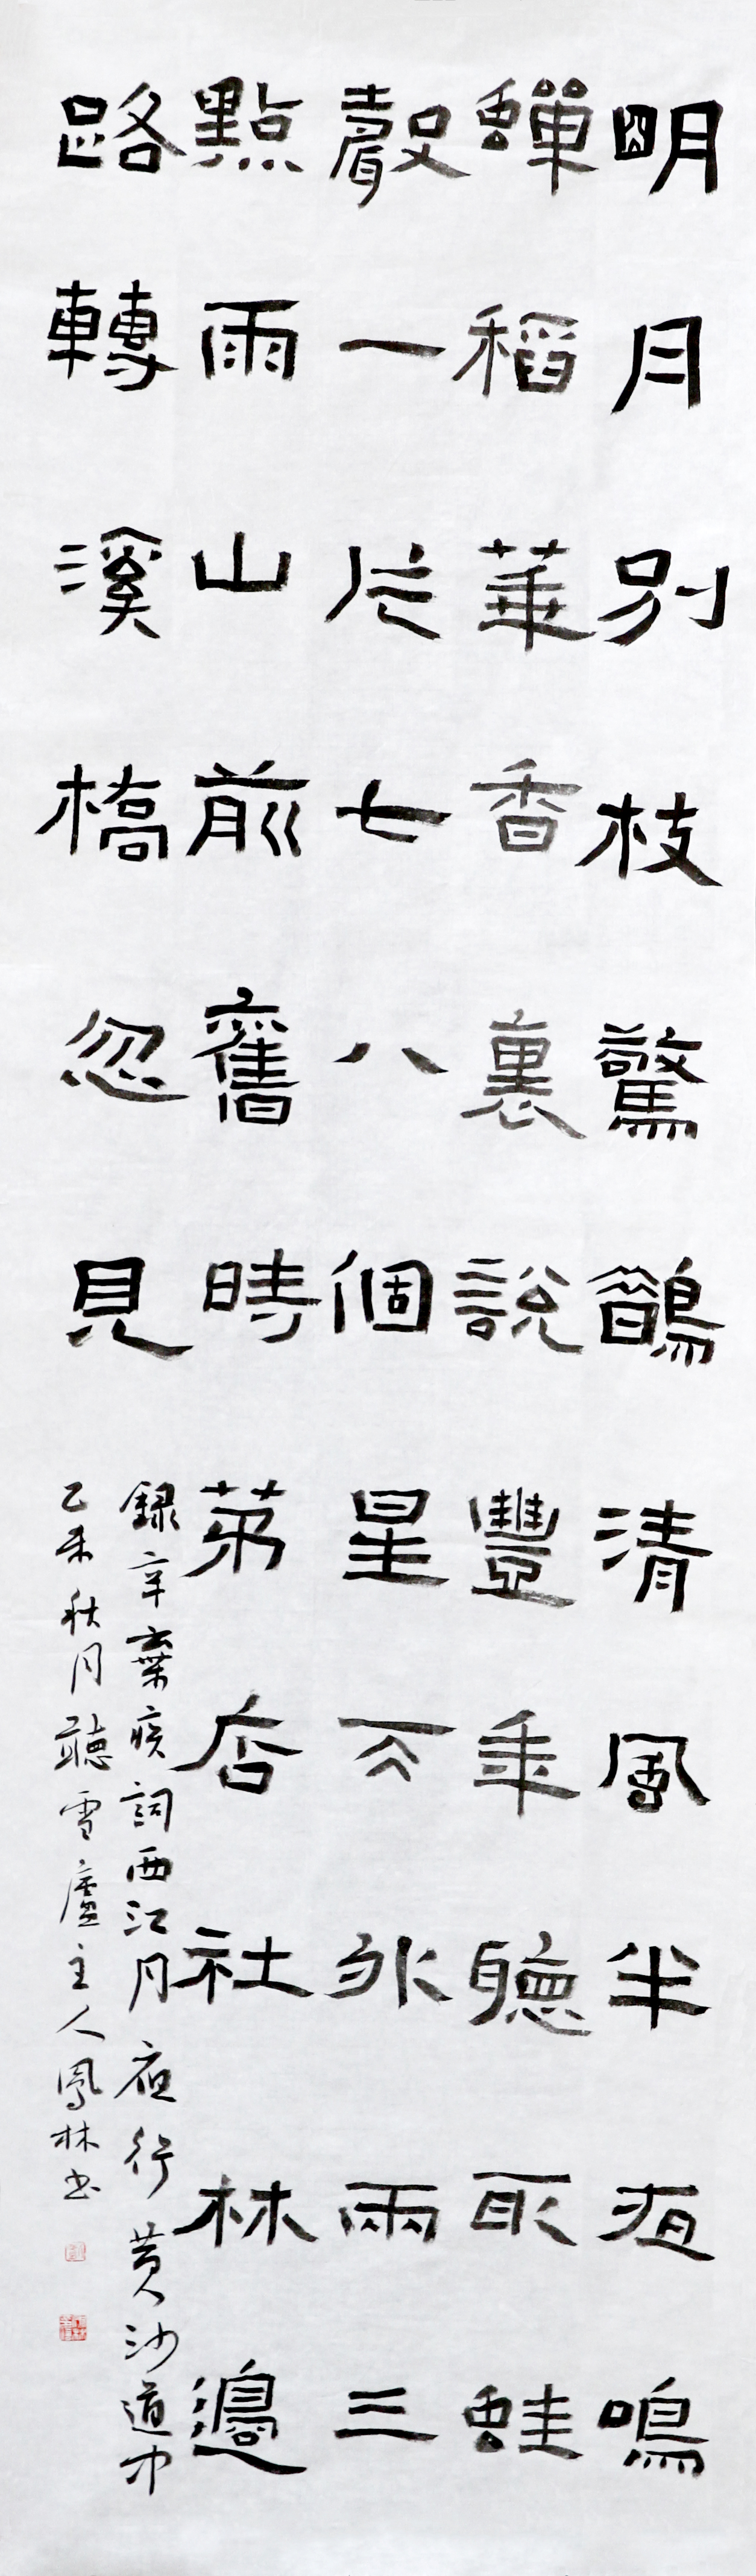 朙月別枝驚鵲清風半夜鳴
蟬稻華香裏說豐年聽取蛙
聲一片七八個星天外兩三
點雨山前舊時茅店社林邊
路轉溪橋忽見
録辛棄疾詞西江月夜行黄沙道中
乙未秋月聽雪廬主人鳳林书